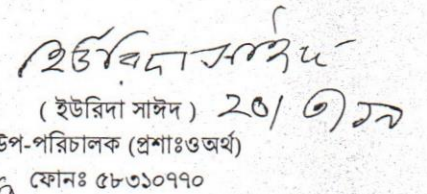 ইউরিদা সাঈদ
( ইউরিদা সাঈদ )
উপ-পরিচালক (প্রশাঃওঅর্থ)
ফোনঃ ৫৮৩১০৭৭০